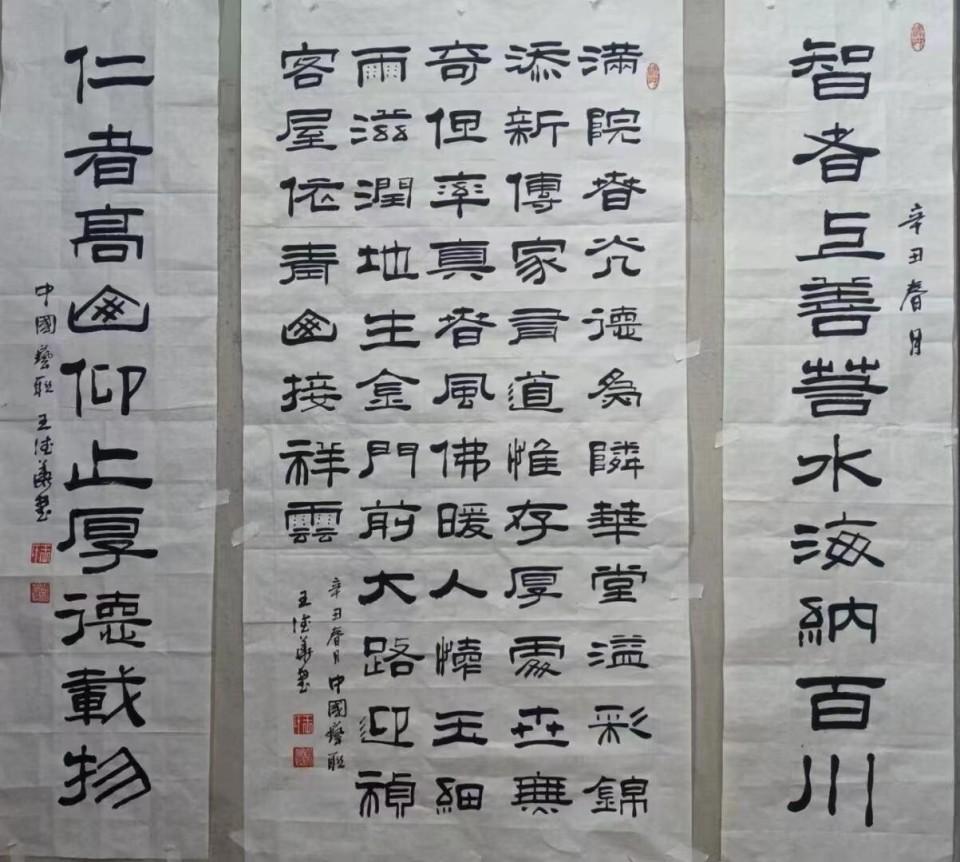 辛丑春月
智者上善若水海納百川
滿院春光德為隣華堂溢彩錦
添新傳家有道惟存厚處世無
奇但率真春風佛暖人懷玉細
雨滋潤地生金門前大路迎禎
客屋依青山接祥雲
辛丑春月中國藝联
王德華書
仁者高山仰止厚德載物
中國藝联王德華書